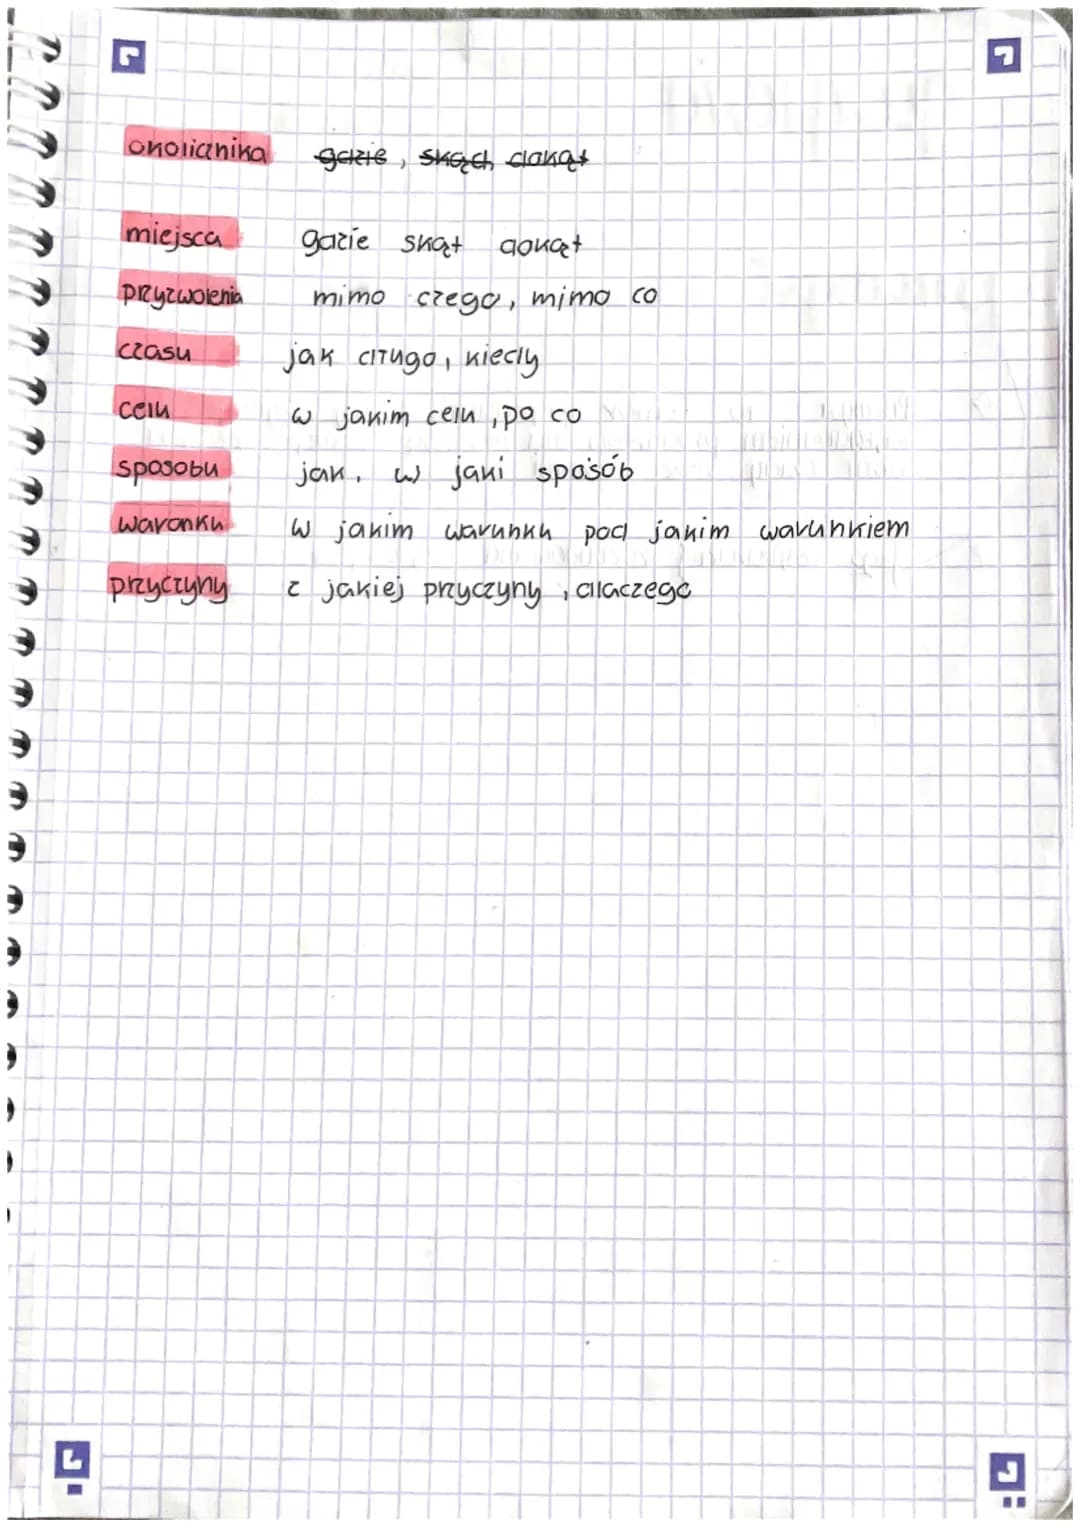 okolicznika gdzie, skądś dokąt
miejsca gdzie skąt dokąt
przyzwolenia mimo czego, mimo co
czasu jak długo, kiedy
celu w jakim celu, po co
sposobu jak, w jaki sposób
waronku w jakim warunku pod jakim warunkiem
przyczyny z jakiej przyczyny, dlaczego